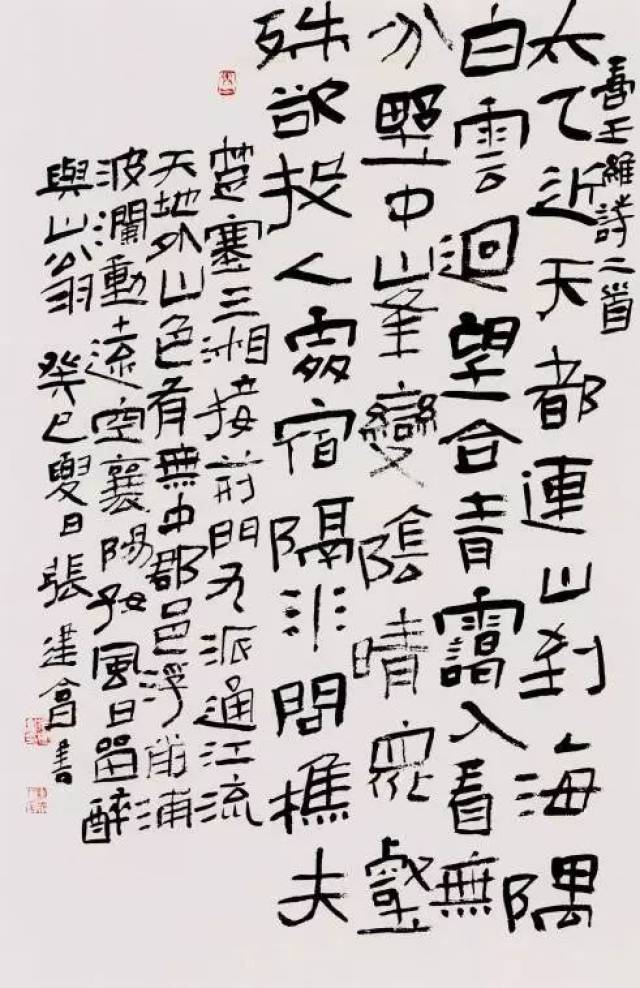 書王維詩二首
太乙近天都連山到海隅
白雲迴望合青靄入看無
分野中峯變陰晴眾壑
殊欲投人處宿隔水問樵夫
楚塞三湘接荊門九派通江流
天地外山色有無中郡邑浮前浦
波瀾動遠空襄陽好風日留醉
與山翁 癸巳夏日張建會書